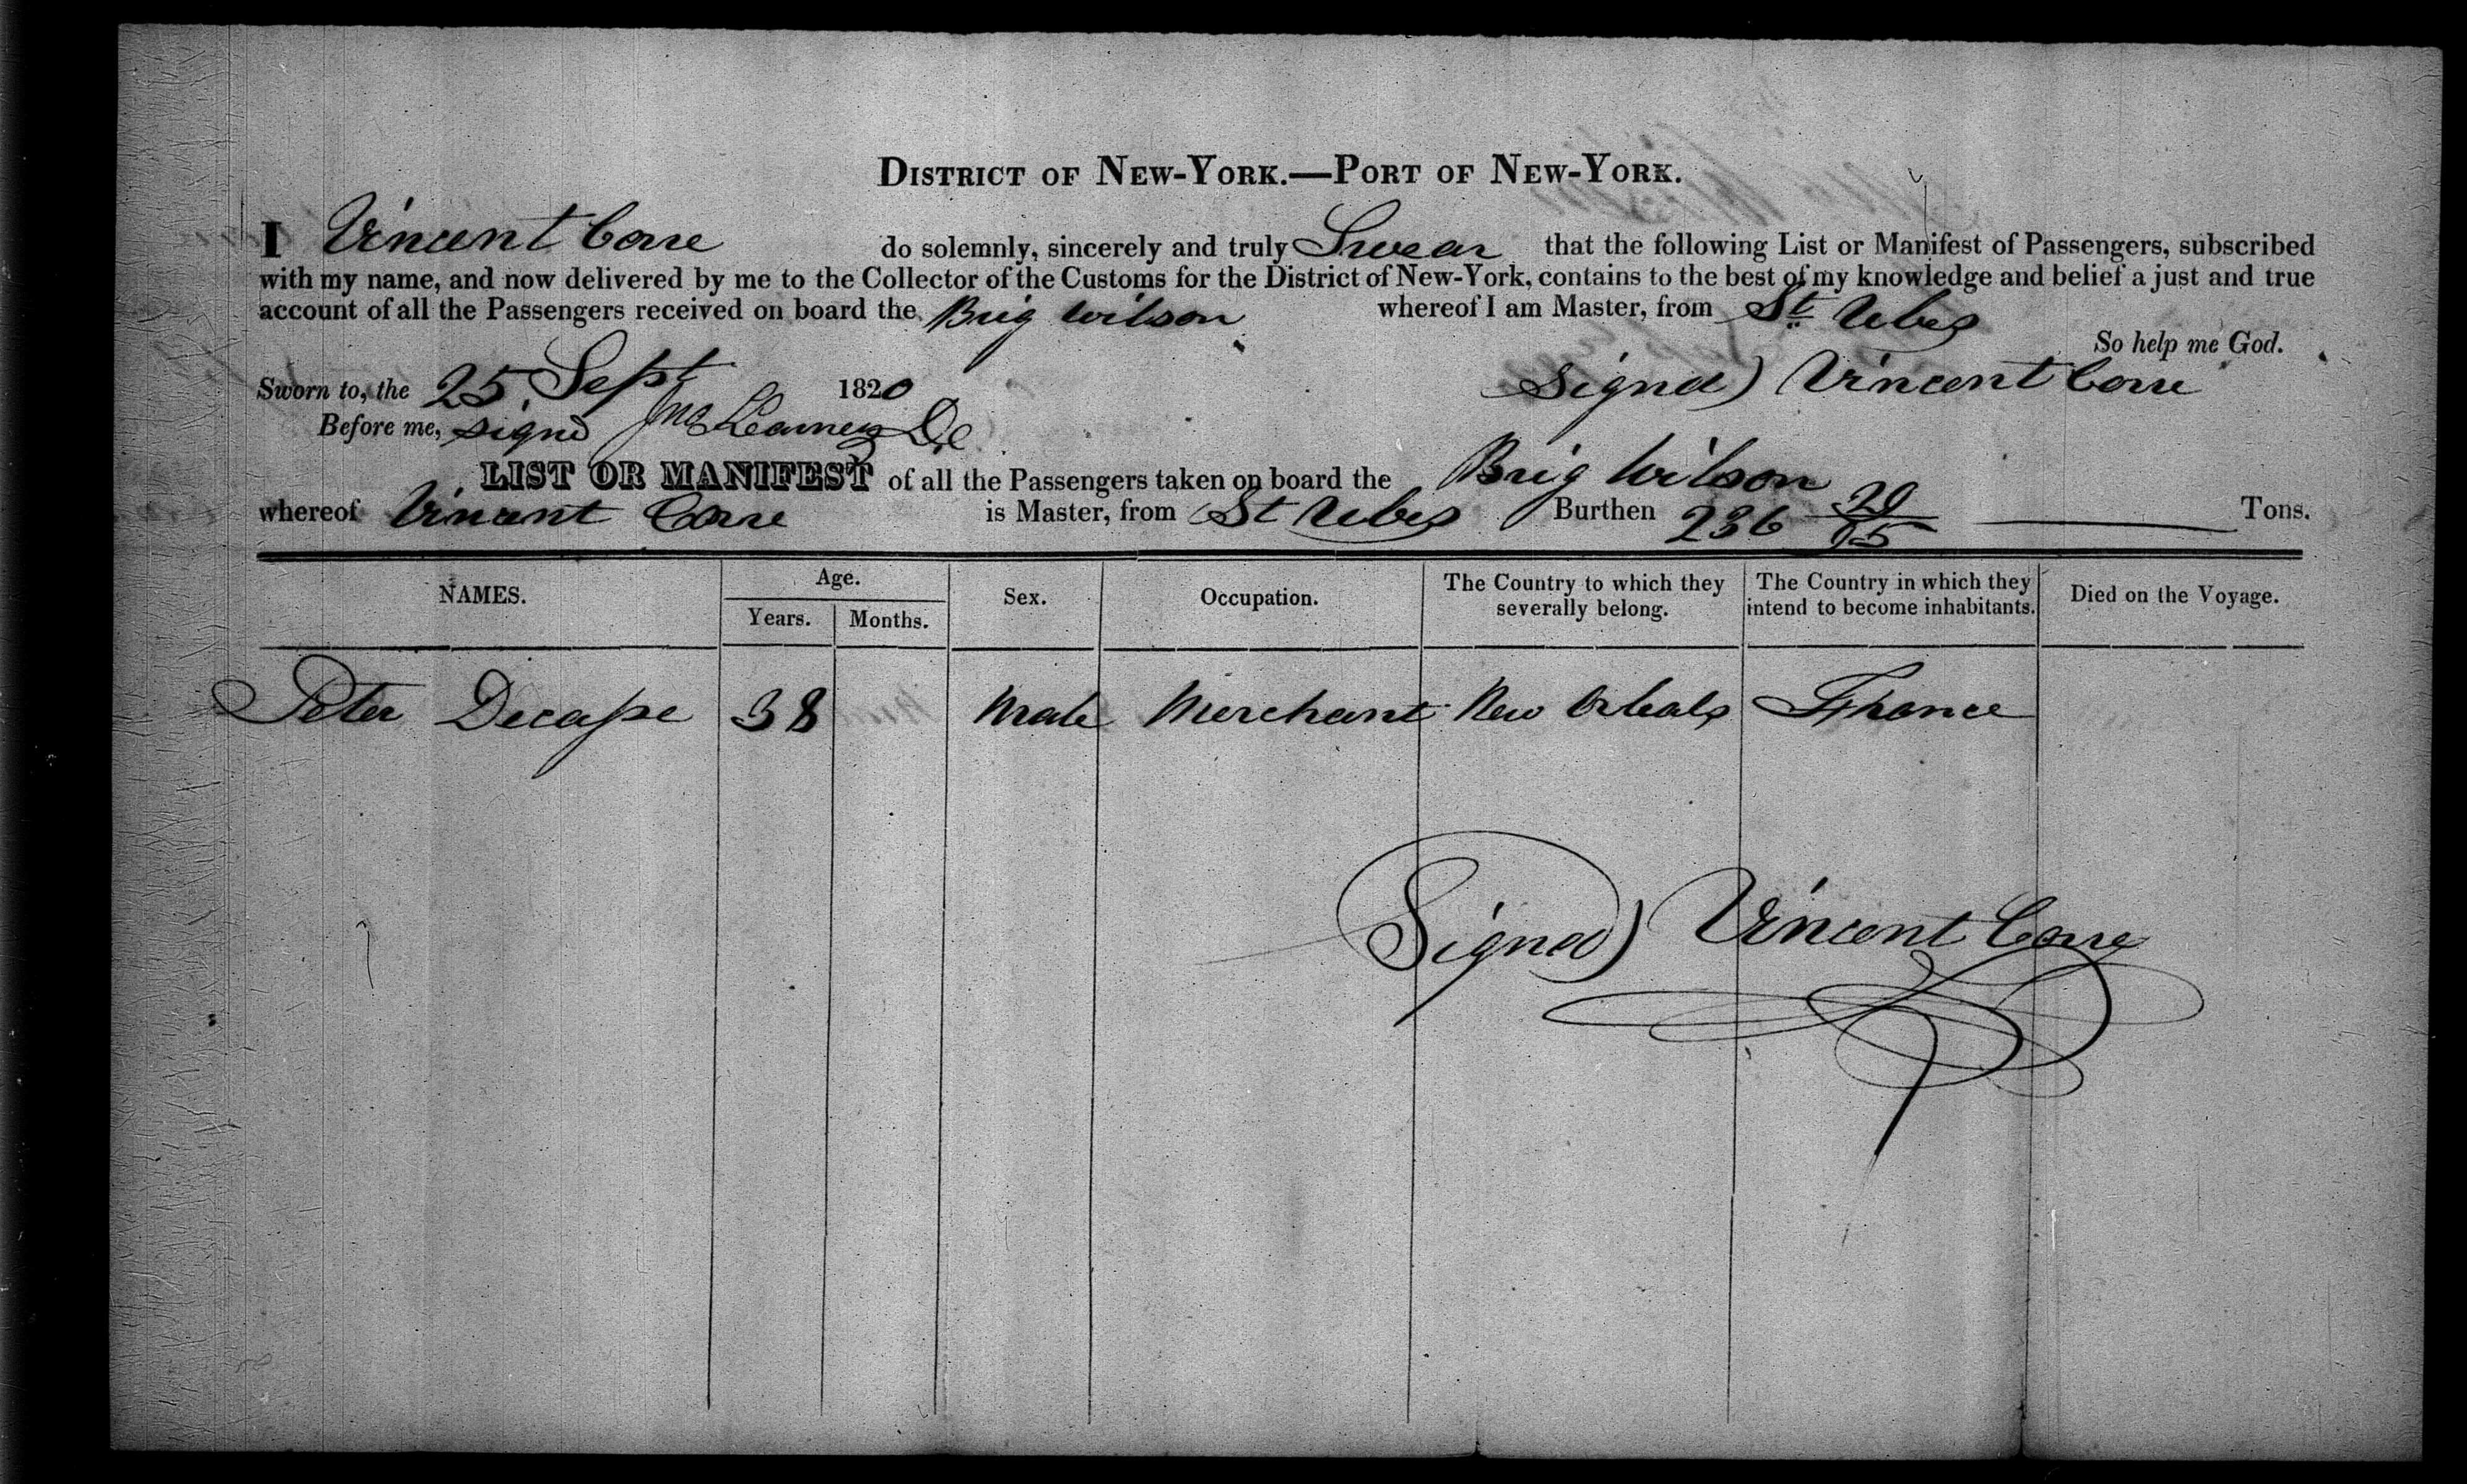 DISTRICT OF NEW-YORK.—PORT OF NEW-YORK.
I Vincent Corre do solemnly, sincerely and truly Swear that the following List or Manifest of Passengers, subscribed
with my name, and now delivered by me to the Collector of the Customs for the District of New-York, contains to the best of my knowledge and belief a just and true
account of all the Passengers received on board the Brig Wilson whereof I am Master, from St Ubes
So help me God.
Sworn to, the 25 Sept 1820 Signed) Vincent Corre
Before me, signd Jno DC
LIST OR MANIFEST of all the Passengers taken on board the Brig Wilson
whereof Vincent Corre is Master, from St Ubes Burthen 236 29/95 Tons.
NAMES. Age. Years. Months. Sex. Occupation. The Country to which they severally belong. The Country in which they intend to become inhabitants. Died on the Voyage.
Peter Decape 38 Male Merchant New Orleals France
Signed) Vincent Corre